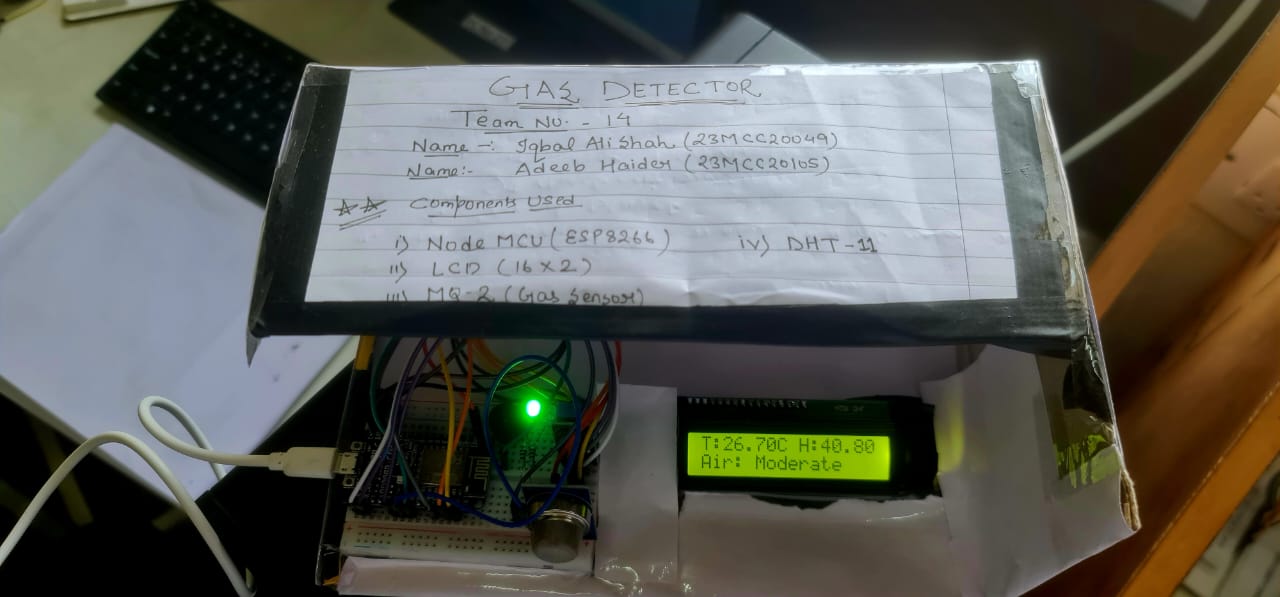 GAS DETECTOR
Team No. - 14
Name -: Iqbal Ali Shah (23MCC20049)
Name:- Adeeb Haider (23MCC20105)
Components Used
i) Node MCU (ESP8266) iv) DHT-11
ii) LCD (16 X 2)
iii) MQ-2 (Gas Sensor)
T:26.70C H:40.80
Air: Moderate